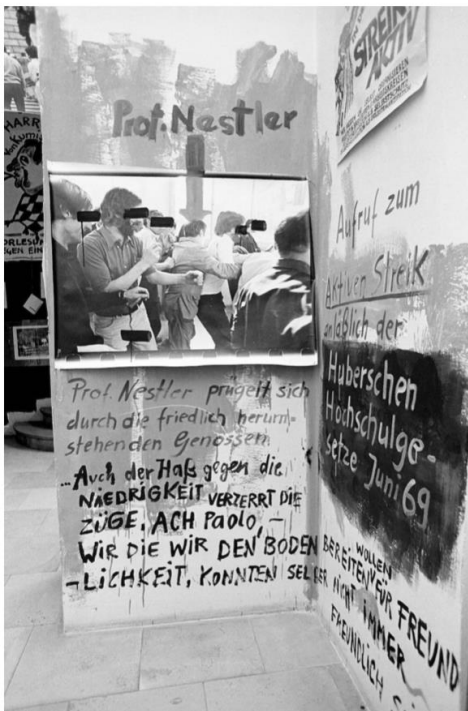 Prof. Nestler
Prof. Nestler prügelt sich
durch die friedlich herum-
stehenden Genossen
"Auch der Haß gegen die
NIEDRIGKEIT VERZERRT DIE
ZÜGE, ACH PAOLO, –
WIR DIE WIR DEN BODEN BEREITEN WOLLEN FÜR FREUND
-LICHKEIT, KONNTEN SELBER NICHT IMMER
FREUNDLICH
STREIK
AKTIV
Aufruf zum
Aktiven Streik
anläßlich der
Huberschen
Hochschulge-
setze Juni 69
HARR
von Kumis
ORLESU
EGEN EIN